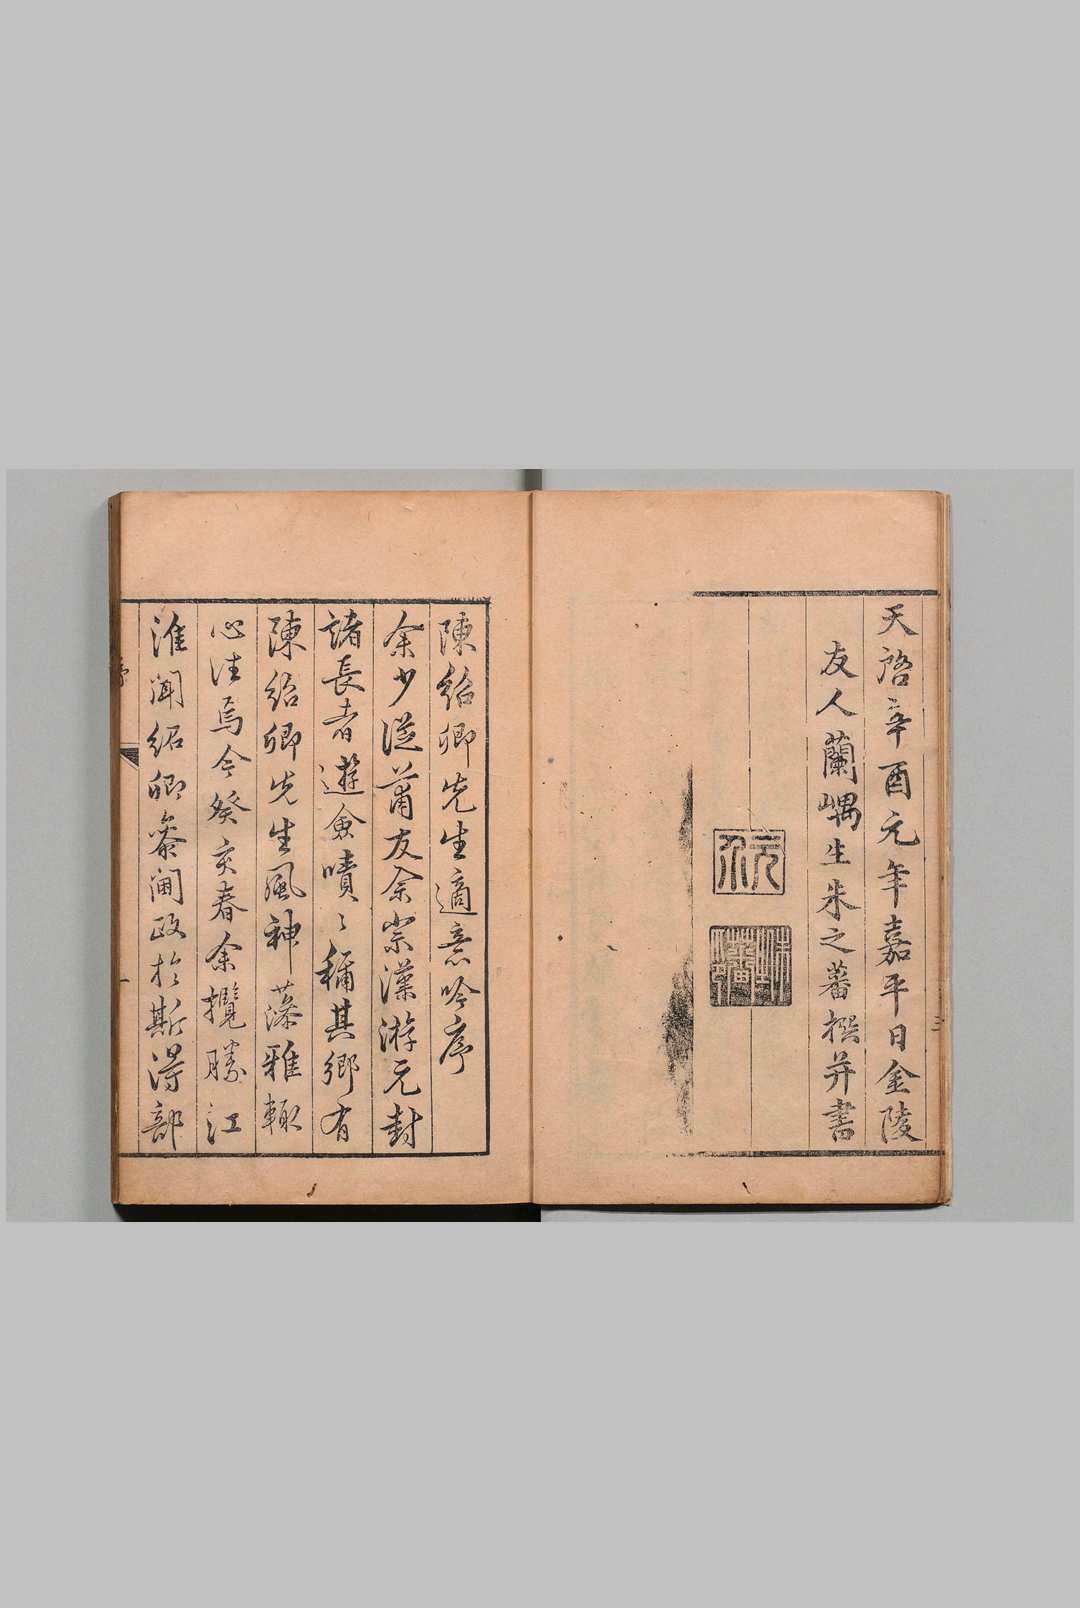 天啓辛酉元年嘉平日金陵
友人蘭嵎生朱之蕃撰并書
元介
三
陳紹卿先生適意吟序
余少從莆友余崇漢游元封
諸長者遊僉嘖〻稱其鄉有
陳紹卿先生風神藻雅輒
心往焉今癸亥春余攬勝江
淮聞紹卿參閫政於斯得部
序
一